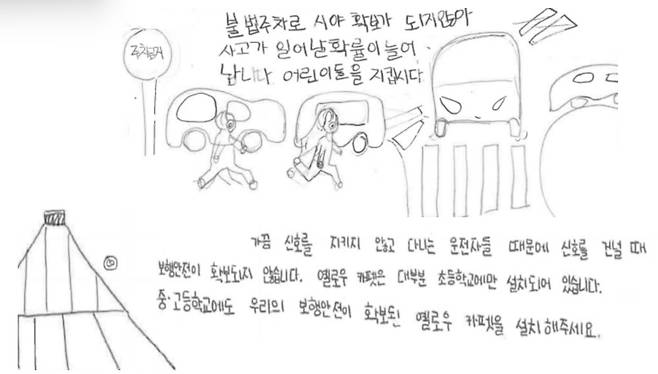 불법주차로 시야 확보가 되지않아
사고가 일어날확률이 늘어
납니다 어린이들을 지킵시다
가끔 신호를 지키지 않고 다니는 운전자들 때문에 신호를 건널 때
보행안전이 확보되지 않습니다. 옐로우 카펫은 대부분 초등학교에만 설치되어 있습니다.
중·고등학교에도 우리의 보행안전이 확보된 옐로우 카펫을 설치해주세요.